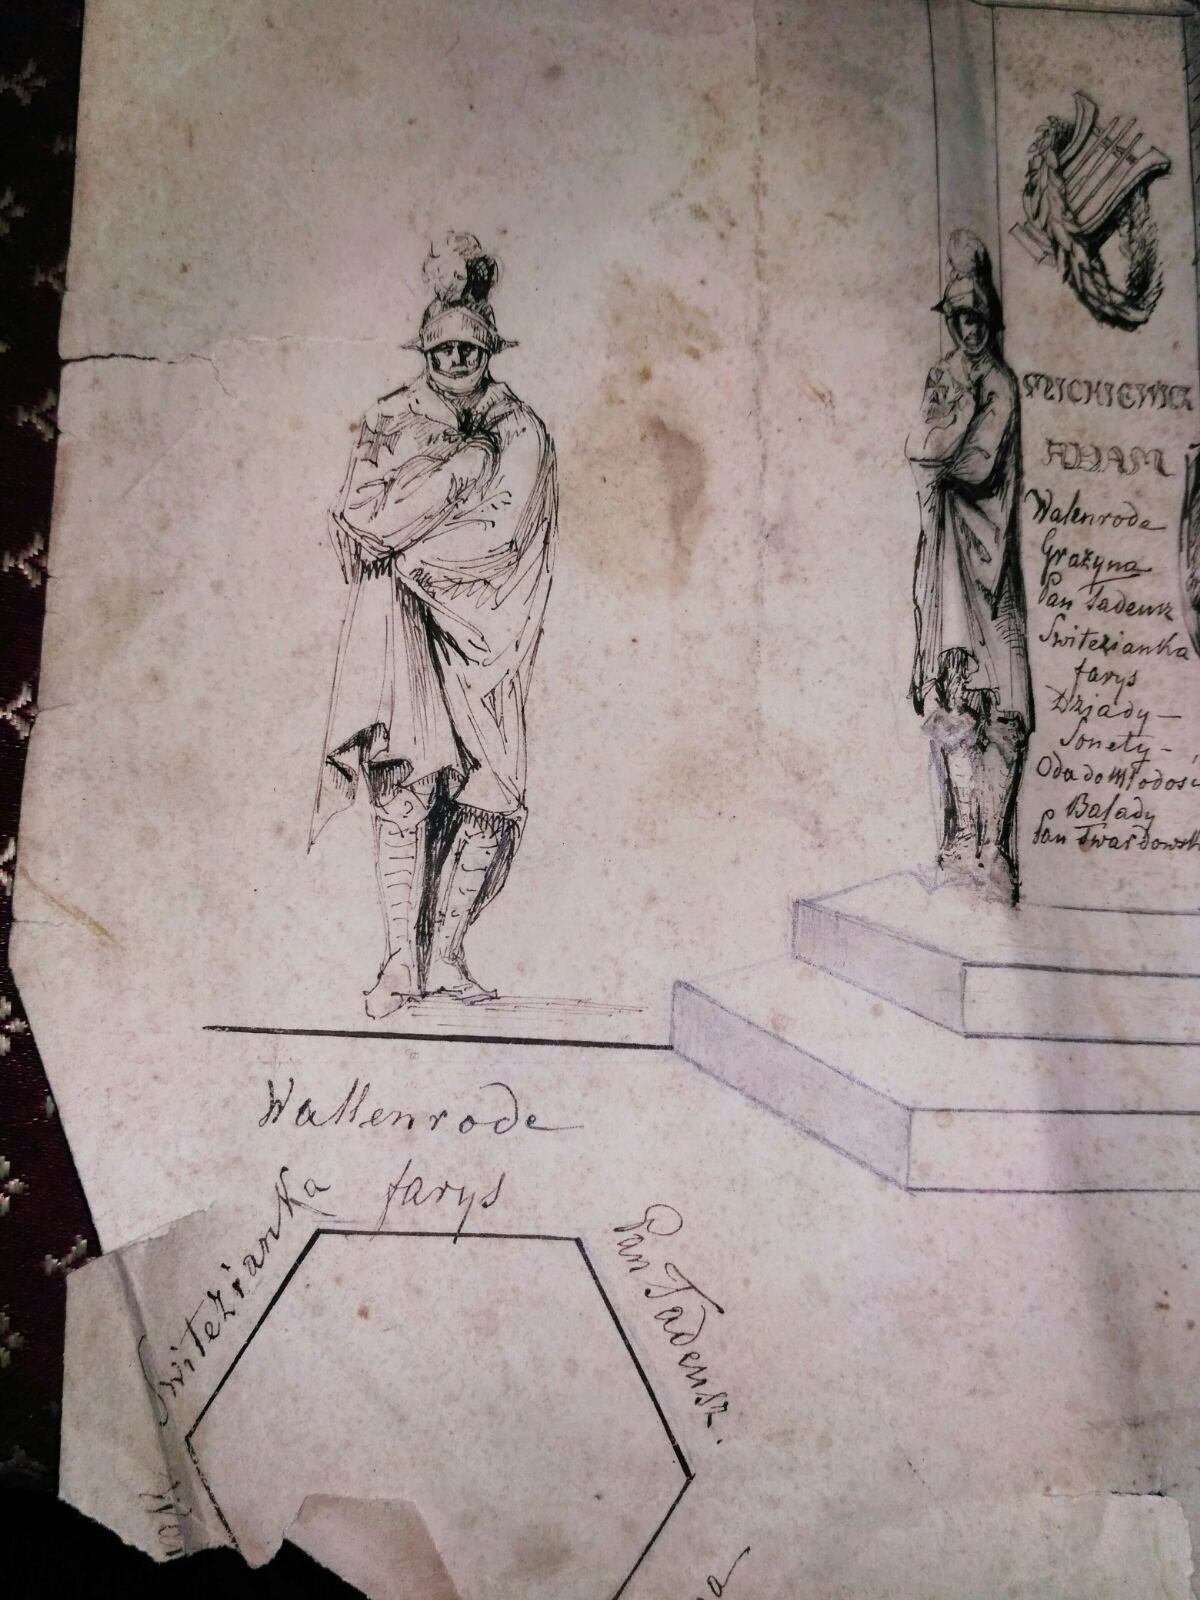 MICKIEWICZ
ADAM
Walenrode
Grażyna
Pan Tadeusz
Switezianka
farys
Dziady —
Sonety —
Oda do Młodośc
Balady
Pan Twardowsk
Wallenrode
farys
Switezianka
Pan Tadeusz.
Wal
na